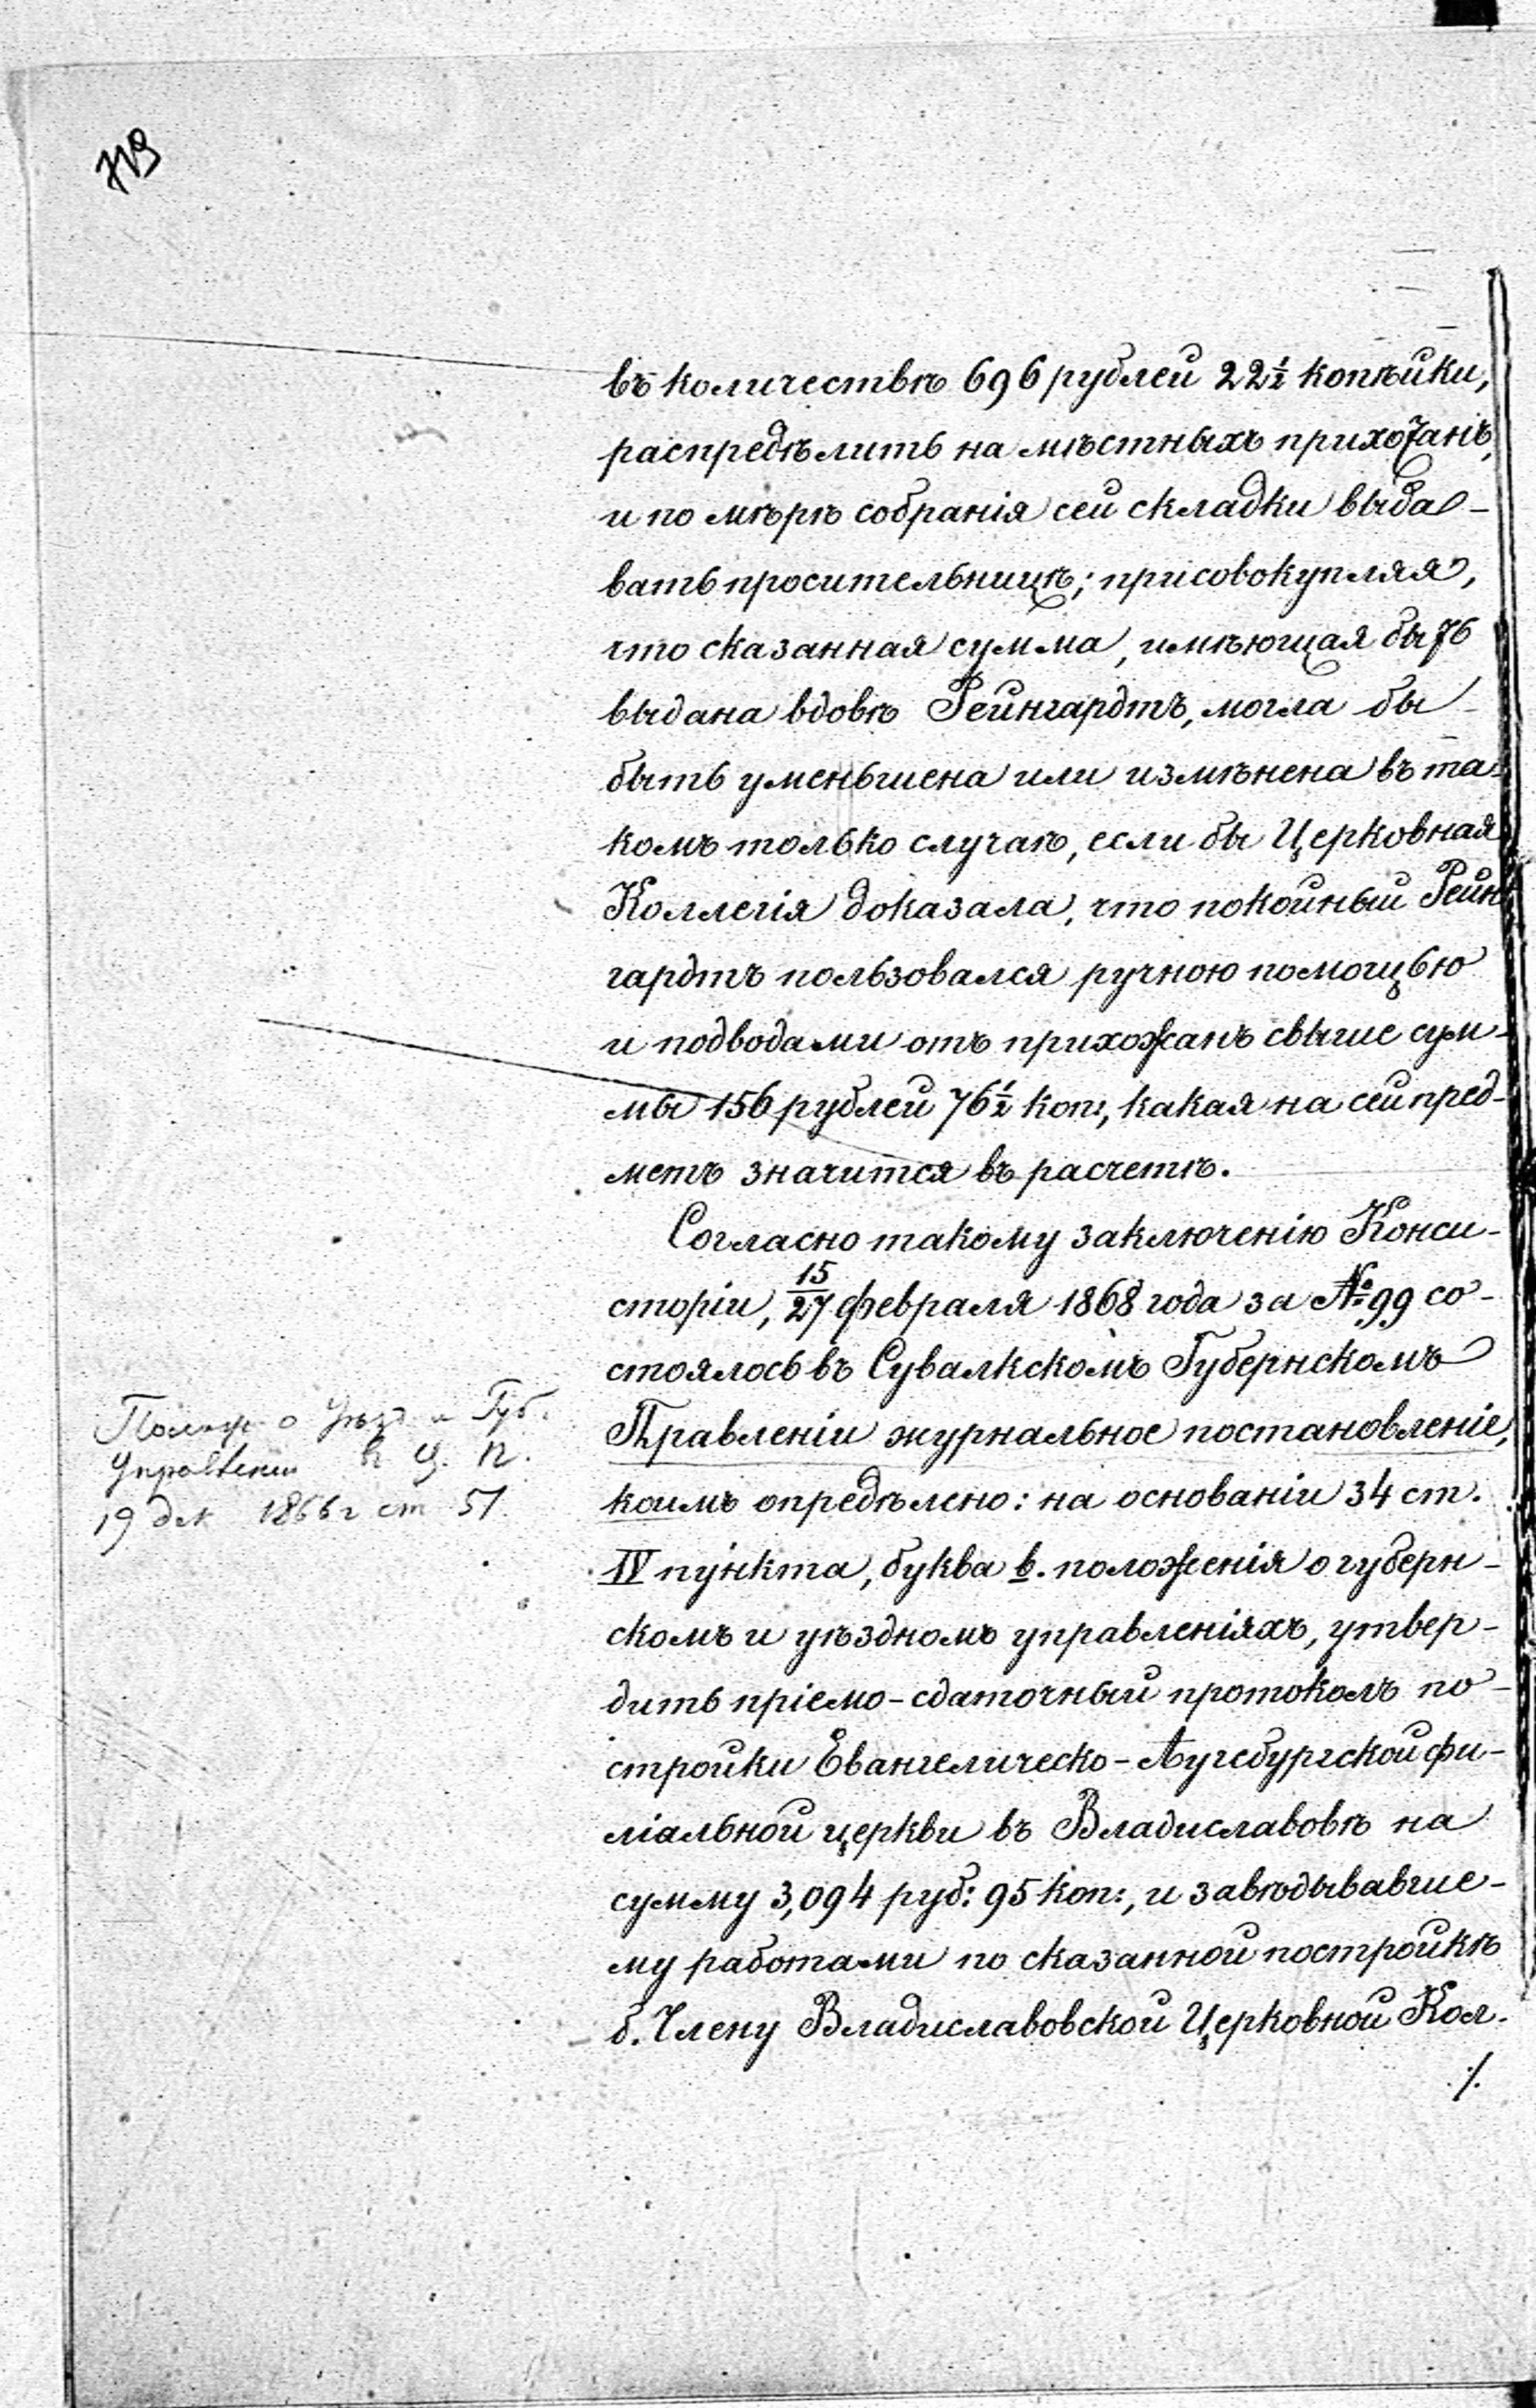 въ количествѣ 696 рублей 22½ копѣйки,
распредѣлить на мѣстныхъ прихожанъ,
и по мѣрѣ собранія сей складки выда-
вать просительницѣ; присовокупляя,
что сказанная сумма, имѣющая быть
выдана вдовѣ Рейнгардтъ, могла бы
быть уменьшена или измѣнена въ та-
комъ только случаѣ, если бы Церковная
Коллегія доказала, что покойный Рейн-
гардтъ пользовался ручною помощью
и подводами отъ прихожанъ свыше сум-
мы 156 рублей 76½ коп:, какая на сей пред-
метъ значится въ расчетѣ.
Согласно такому заключенію Конси-
сторіи, 15/27 февраля 1868 года за № 99 со-
стоялось въ Сувалкскомъ Губернскомъ
Правленіи журнальное постановленіе,
коимъ опредѣлено: на основаніи 34 ст.
IV пункта, буква b. положенія о губерн-
скомъ и уѣздномъ управленіяхъ, утвер-
дить пріемо-сдаточный протоколъ по-
стройки Евангелическо-Аугсбургской фи-
ліальной церкви въ Владиславовѣ на
сумму 3,094 руб: 95 коп:, и завѣдывавше-
му работами по сказанной постройкѣ
б. Члену Владиславовской Церковной Кол-
./.
о Уѣзд и Губ.
Управленіи в Ц. П.
19 дек 1866 г ст 51